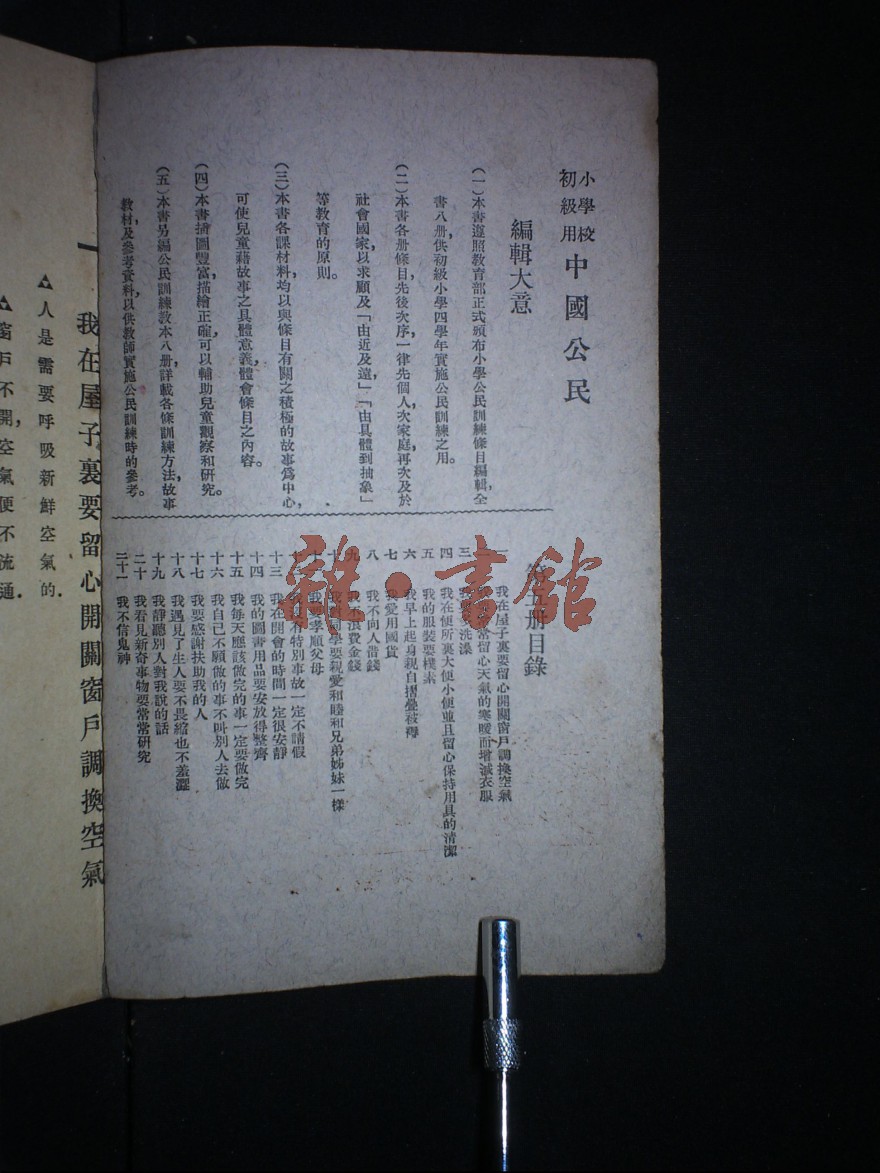 小學校
初級用
中國公民
編輯大意
(一)本書遵照教育部正式頒布小學公民訓練條目編輯,全
書八册,供初級小學四學年實施公民訓練之用。
(二)本書各册條目,先後次序,一律先個人,次家庭,再次及於
社會國家,以求顧及「由近及遠」「由具體到抽象」
等教育的原則。
(三)本書各課材料,均以與條目有關之積極的故事爲中心,
可使兒童藉故事之具體意義,體會條目之內容。
(四)本書插圖豐富,描繪正確,可以輔助兒童觀察和研究。
(五)本書另編公民訓練教本八册,詳載各條訓練方法,故事
教材及參考資料,以供教師實施公民訓練時的參考。
册目錄
一 我在屋子裏要留心開關窗戶調換空氣
常留心天氣的寒暖而增減衣服
三 洗澡
四 我在便所裏大便小便並且留心保持用具的清潔
五 我的服裝要樸素
六 我早上起身親自摺疊被褥
七 我愛用國貨
八 我不向人借錢
九 我不浪費金錢
同學要親愛和睦和兄弟姊妹一樣
我要孝順父母
有特別事故一定不請假
十三 我在開會的時間一定很安靜
十四 我的圖書用品要安放得整齊
十五 我每天應該做完的事一定要做完
十六 我自己不願做的事不叫別人去做
十七 我要感謝扶助我的人
十八 我遇見了生人要不畏縮也不羞澀
十九 我靜聽別人對我說的話
二十 我看見新奇事物要常常研究
二十一 我不信鬼神
雜·書館
一 我在屋子裏要留心開關窗戶調換空氣
△人是需要呼吸新鮮空氣的.
△窗戶不開,空氣便不流通.